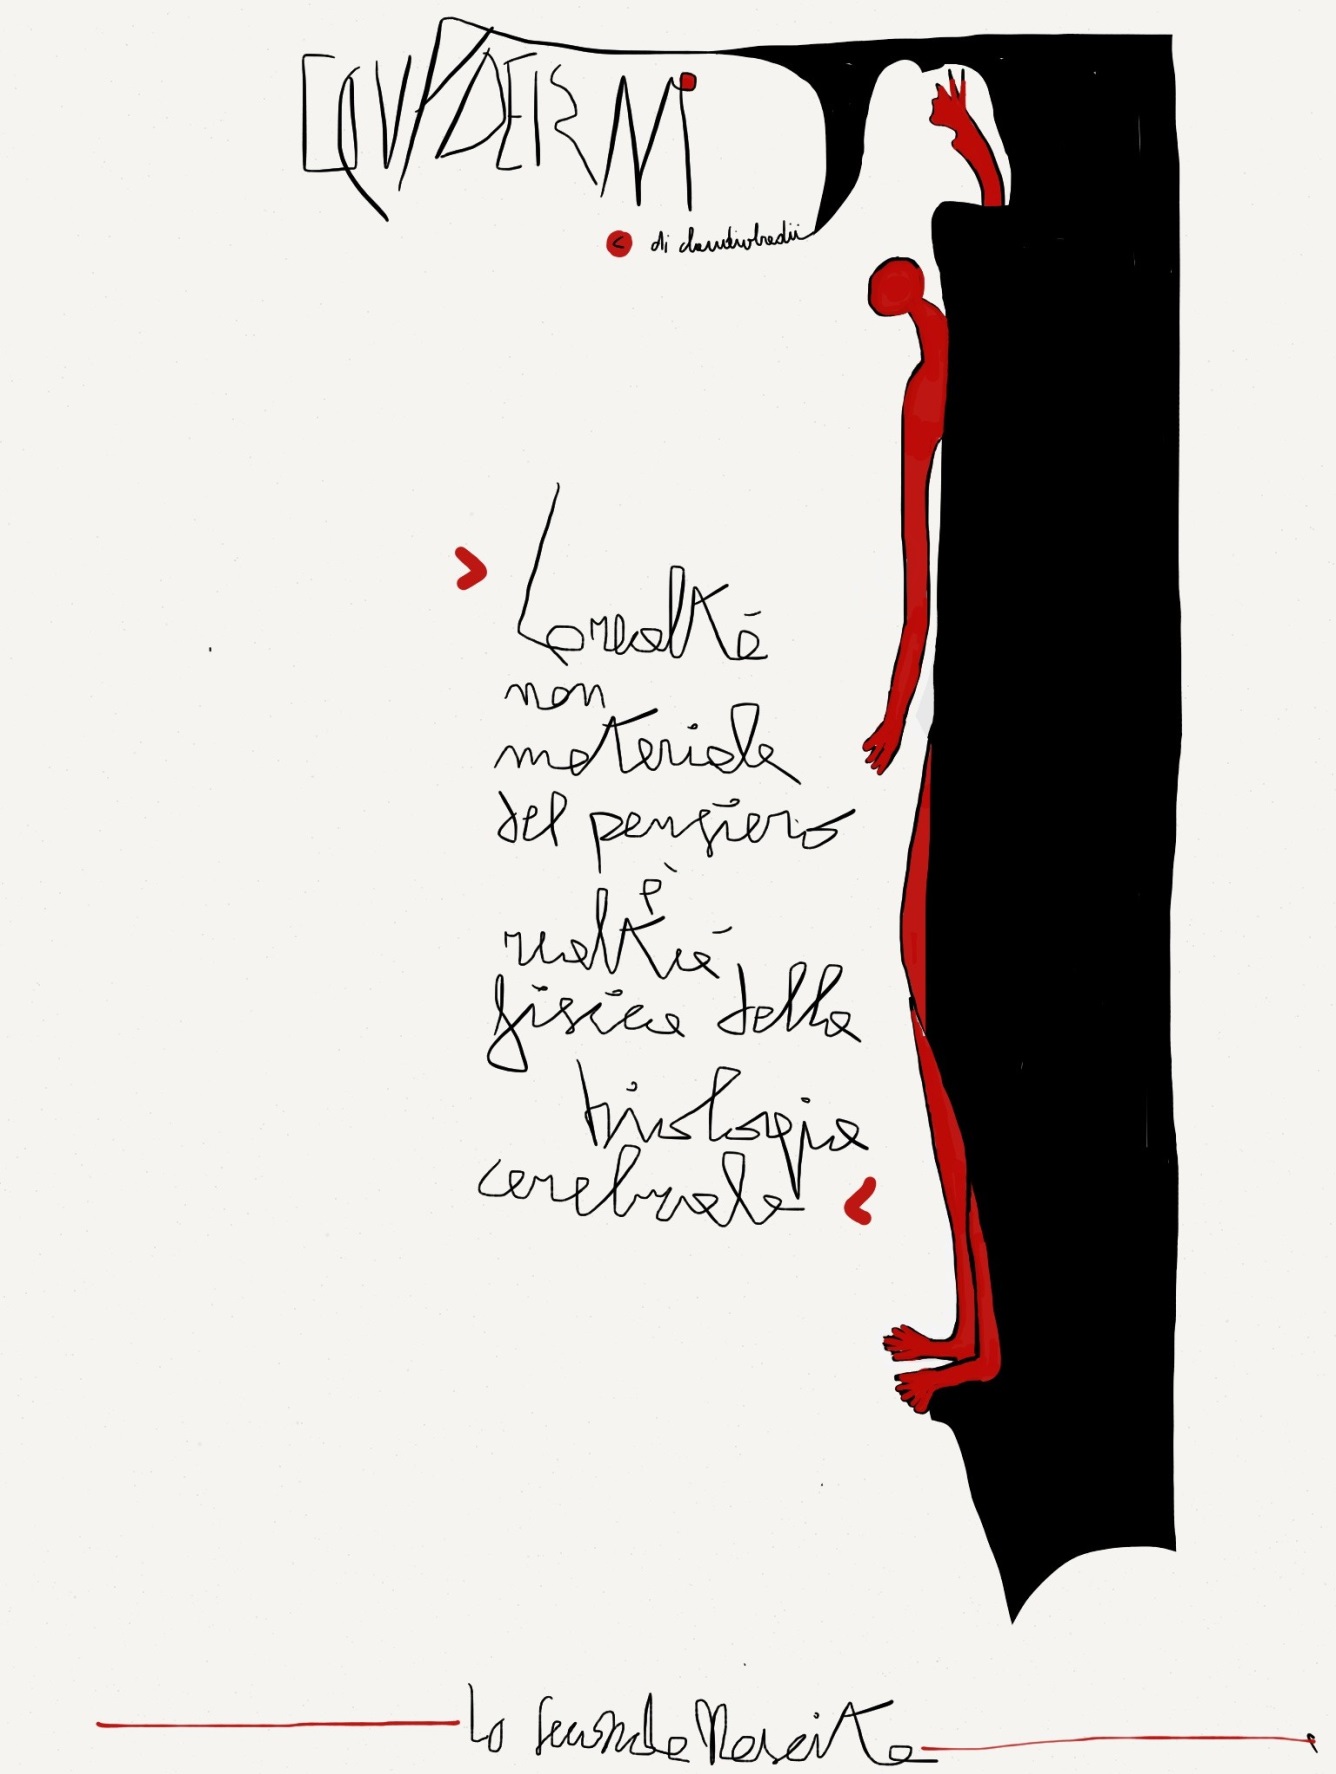 QUADERNI
< di claudiobadii
> La realtà
non
materiale
del pensiero
è
realtà
fisica della
biologia
cerebrale <
La Seconda Nascita